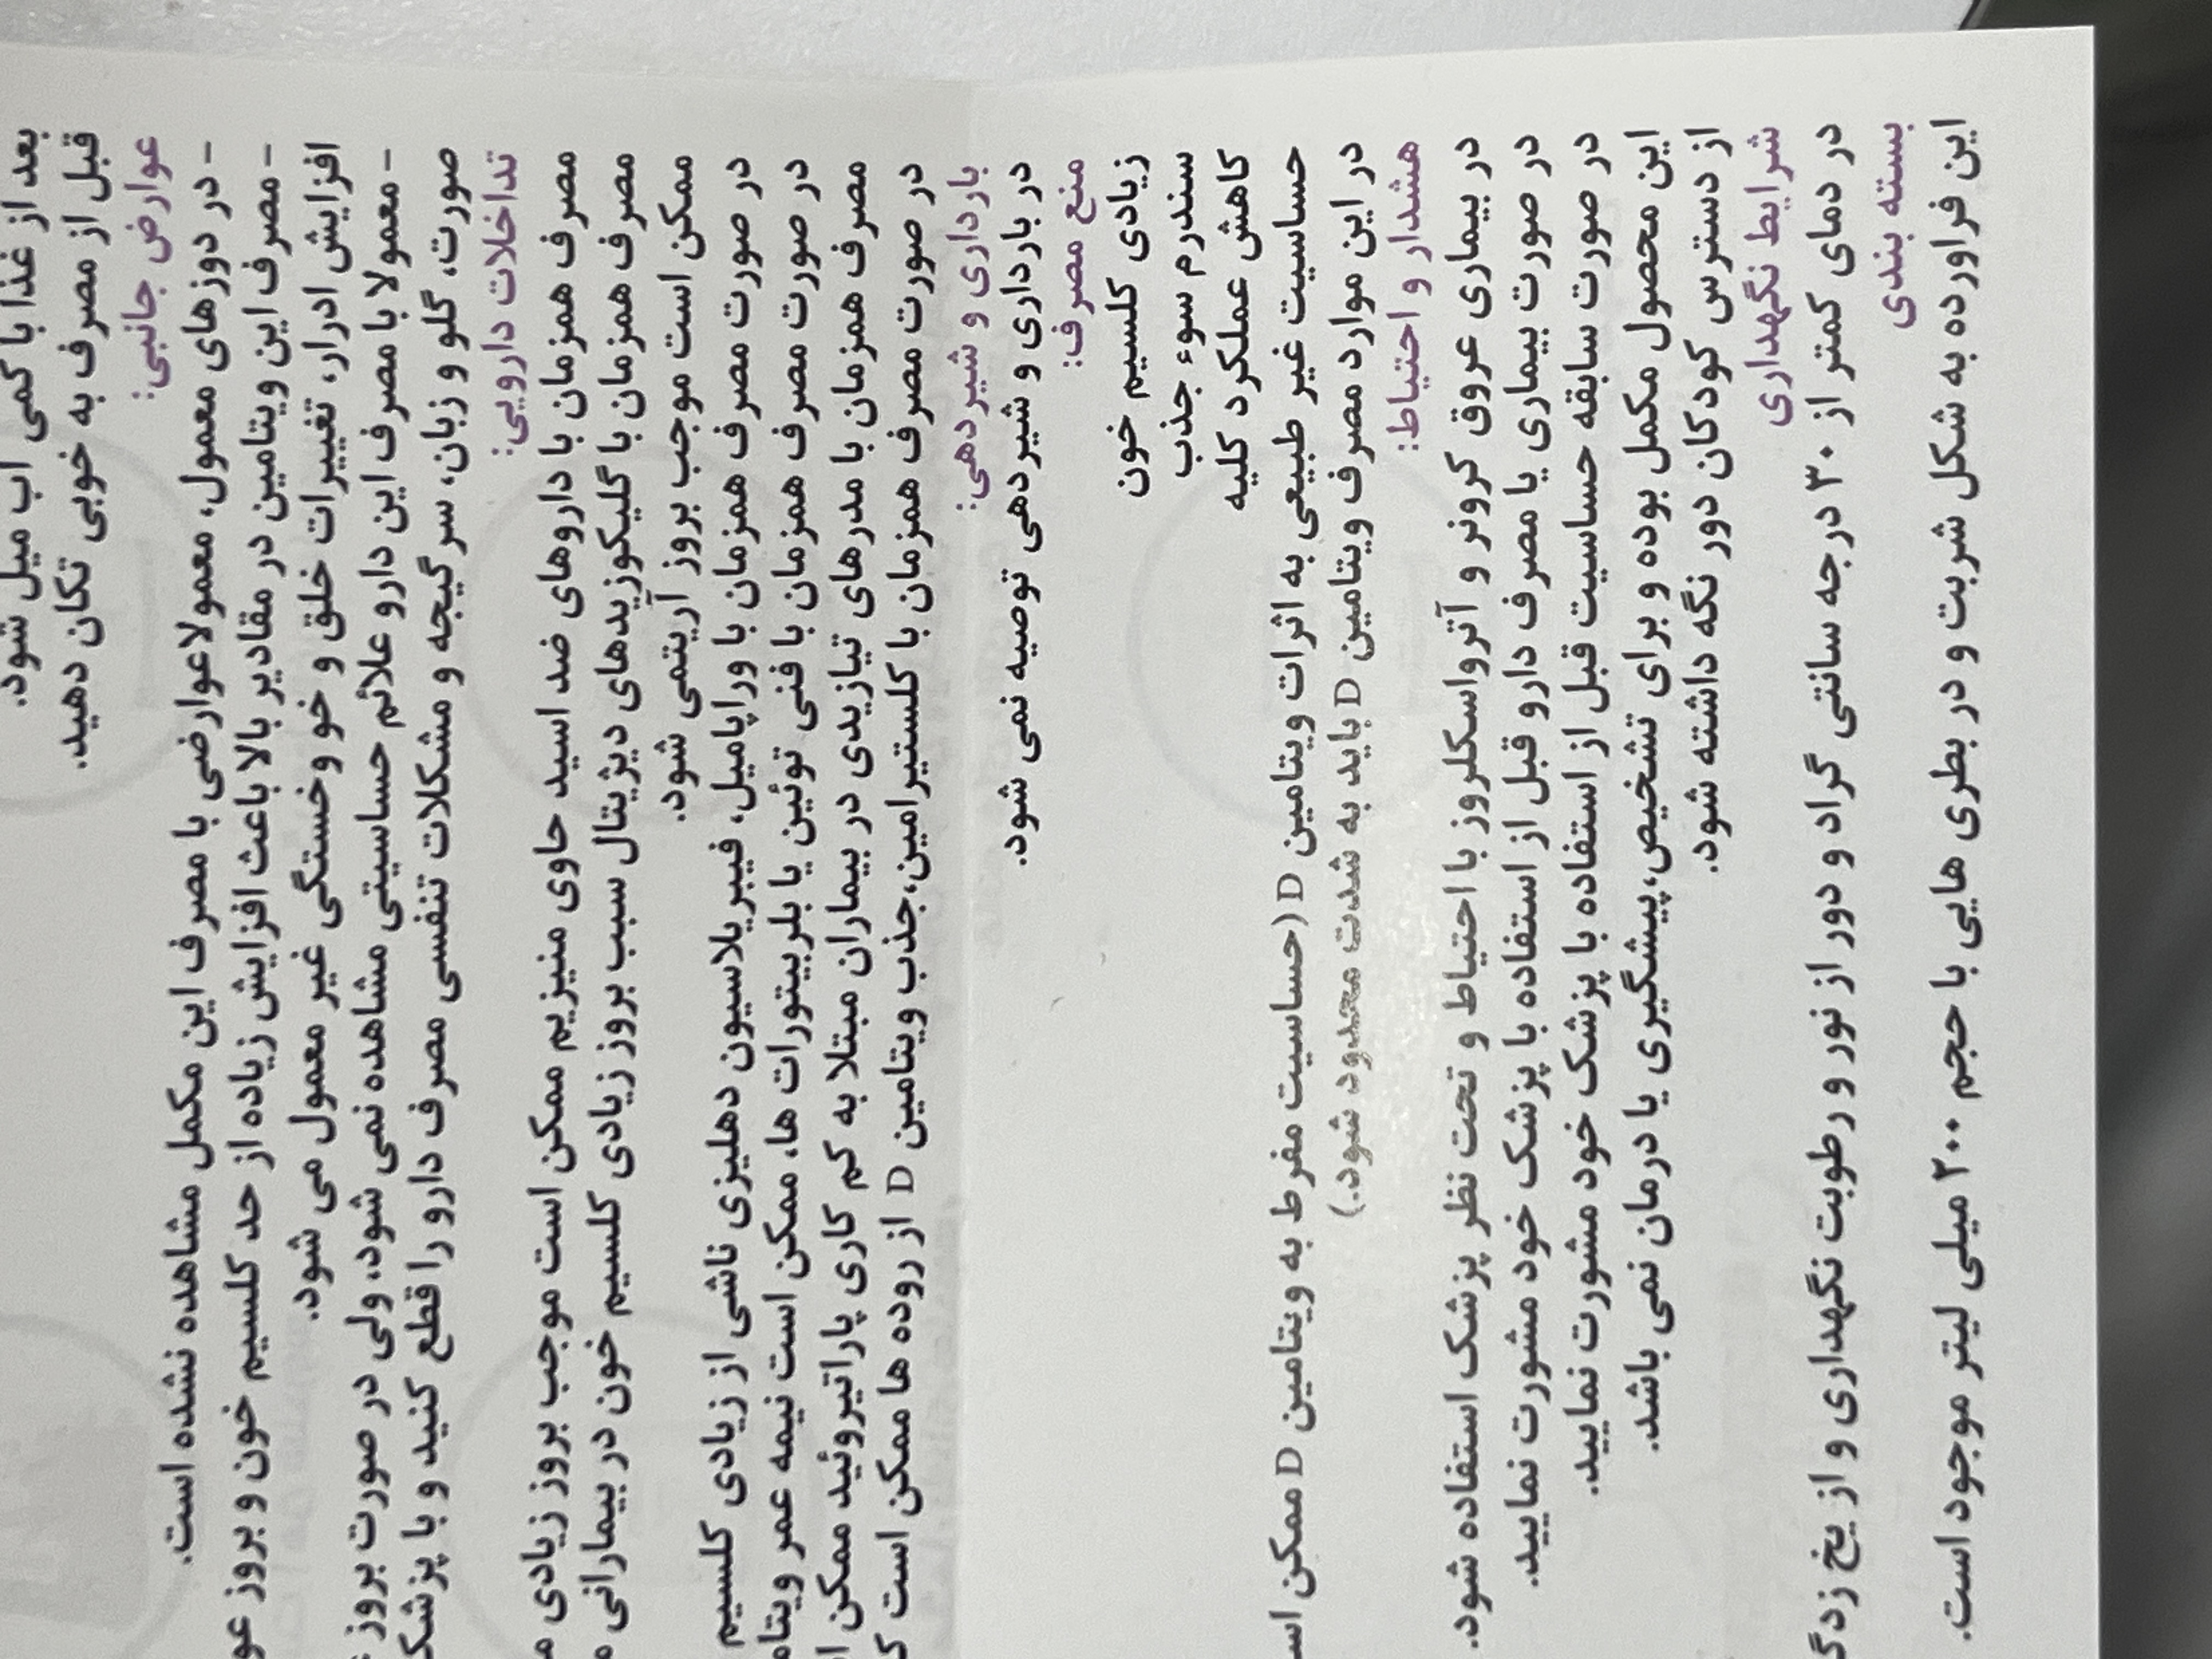 بعد از غذا با کمی آب میل شود.
قبل از مصرف به خوبی تکان دهید.
عوارض جانبی:
- در دوزهای معمول، معمولا عوارضی با مصرف این مکمل مشاهده نشده است.
- مصرف این ویتامین در مقادیر بالا باعث افزایش زیاده از حد کلسیم خون و بروز
افزایش ادرار، تغییرات خلق و خو و خستگی غیر معمول می شود.
- معمولا با مصرف این دارو علائم حساسیتی مشاهده نمی شود، ولی در صورت بروز
صورت، گلو و زبان، سرگیجه و مشکلات تنفسی مصرف دارو را قطع کنید و با پزشک
تداخلات دارویی:
مصرف همزمان با داروهای ضد اسید حاوی منیزیم ممکن است موجب بروز زیادی
مصرف همزمان با گلیکوزیدهای دیژیتال سبب بروز زیادی کلسیم خون در بیمارانی
ممکن است موجب بروز آریتمی شود.
در صورت مصرف همزمان با وراپامیل، فیبریلاسیون دهلیزی ناشی از زیادی کلسیم
در صورت مصرف همزمان با فنی توئین یا بلربیتورات ها، ممکن است نیمه عمر
مصرف همزمان با مدرهای تیازیدی در بیماران مبتلا به کم کاری پاراتیروئید ممکن
در صورت مصرف همزمان با کلستیرامین،جذب ویتامین D از روده ها ممکن است
بارداری و شیردهی:
در بارداری و شیردهی توصیه نمی شود.
منع مصرف:
زیادی کلسیم خون
سندرم سوء جذب
کاهش عملکرد کلیه
حساسیت غیر طبیعی به اثرات ویتامین D (حساسیت مفرط به ویتامین D ممکن
در این موارد مصرف ویتامین D باید به شدت محدود شود.)
هشدار و احتیاط:
در بیماری عروق کرونر و آترواسکلروز با احتیاط و تحت نظر پزشک استفاده شود.
در صورت بیماری یا مصرف دارو قبل از استفاده با پزشک خود مشورت نمایید.
در صورت سابقه حساسیت قبل از استفاده با پزشک خود مشورت نمایید.
این محصول مکمل بوده و برای تشخیص،پیشگیری یا درمان نمی باشد.
از دسترس کودکان دور نگه داشته شود.
شرایط نگهداری
در دمای کمتر از ۳۰ درجه سانتی گراد و دور از نور و رطوبت نگهداری و از یخ
بسته بندی
این فراورده به شکل شربت و در بطری هایی با حجم ۲۰۰ میلی لیتر موجود است.